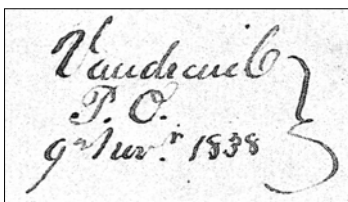 Vaudreuil
P. O.
9 Novr. 1838